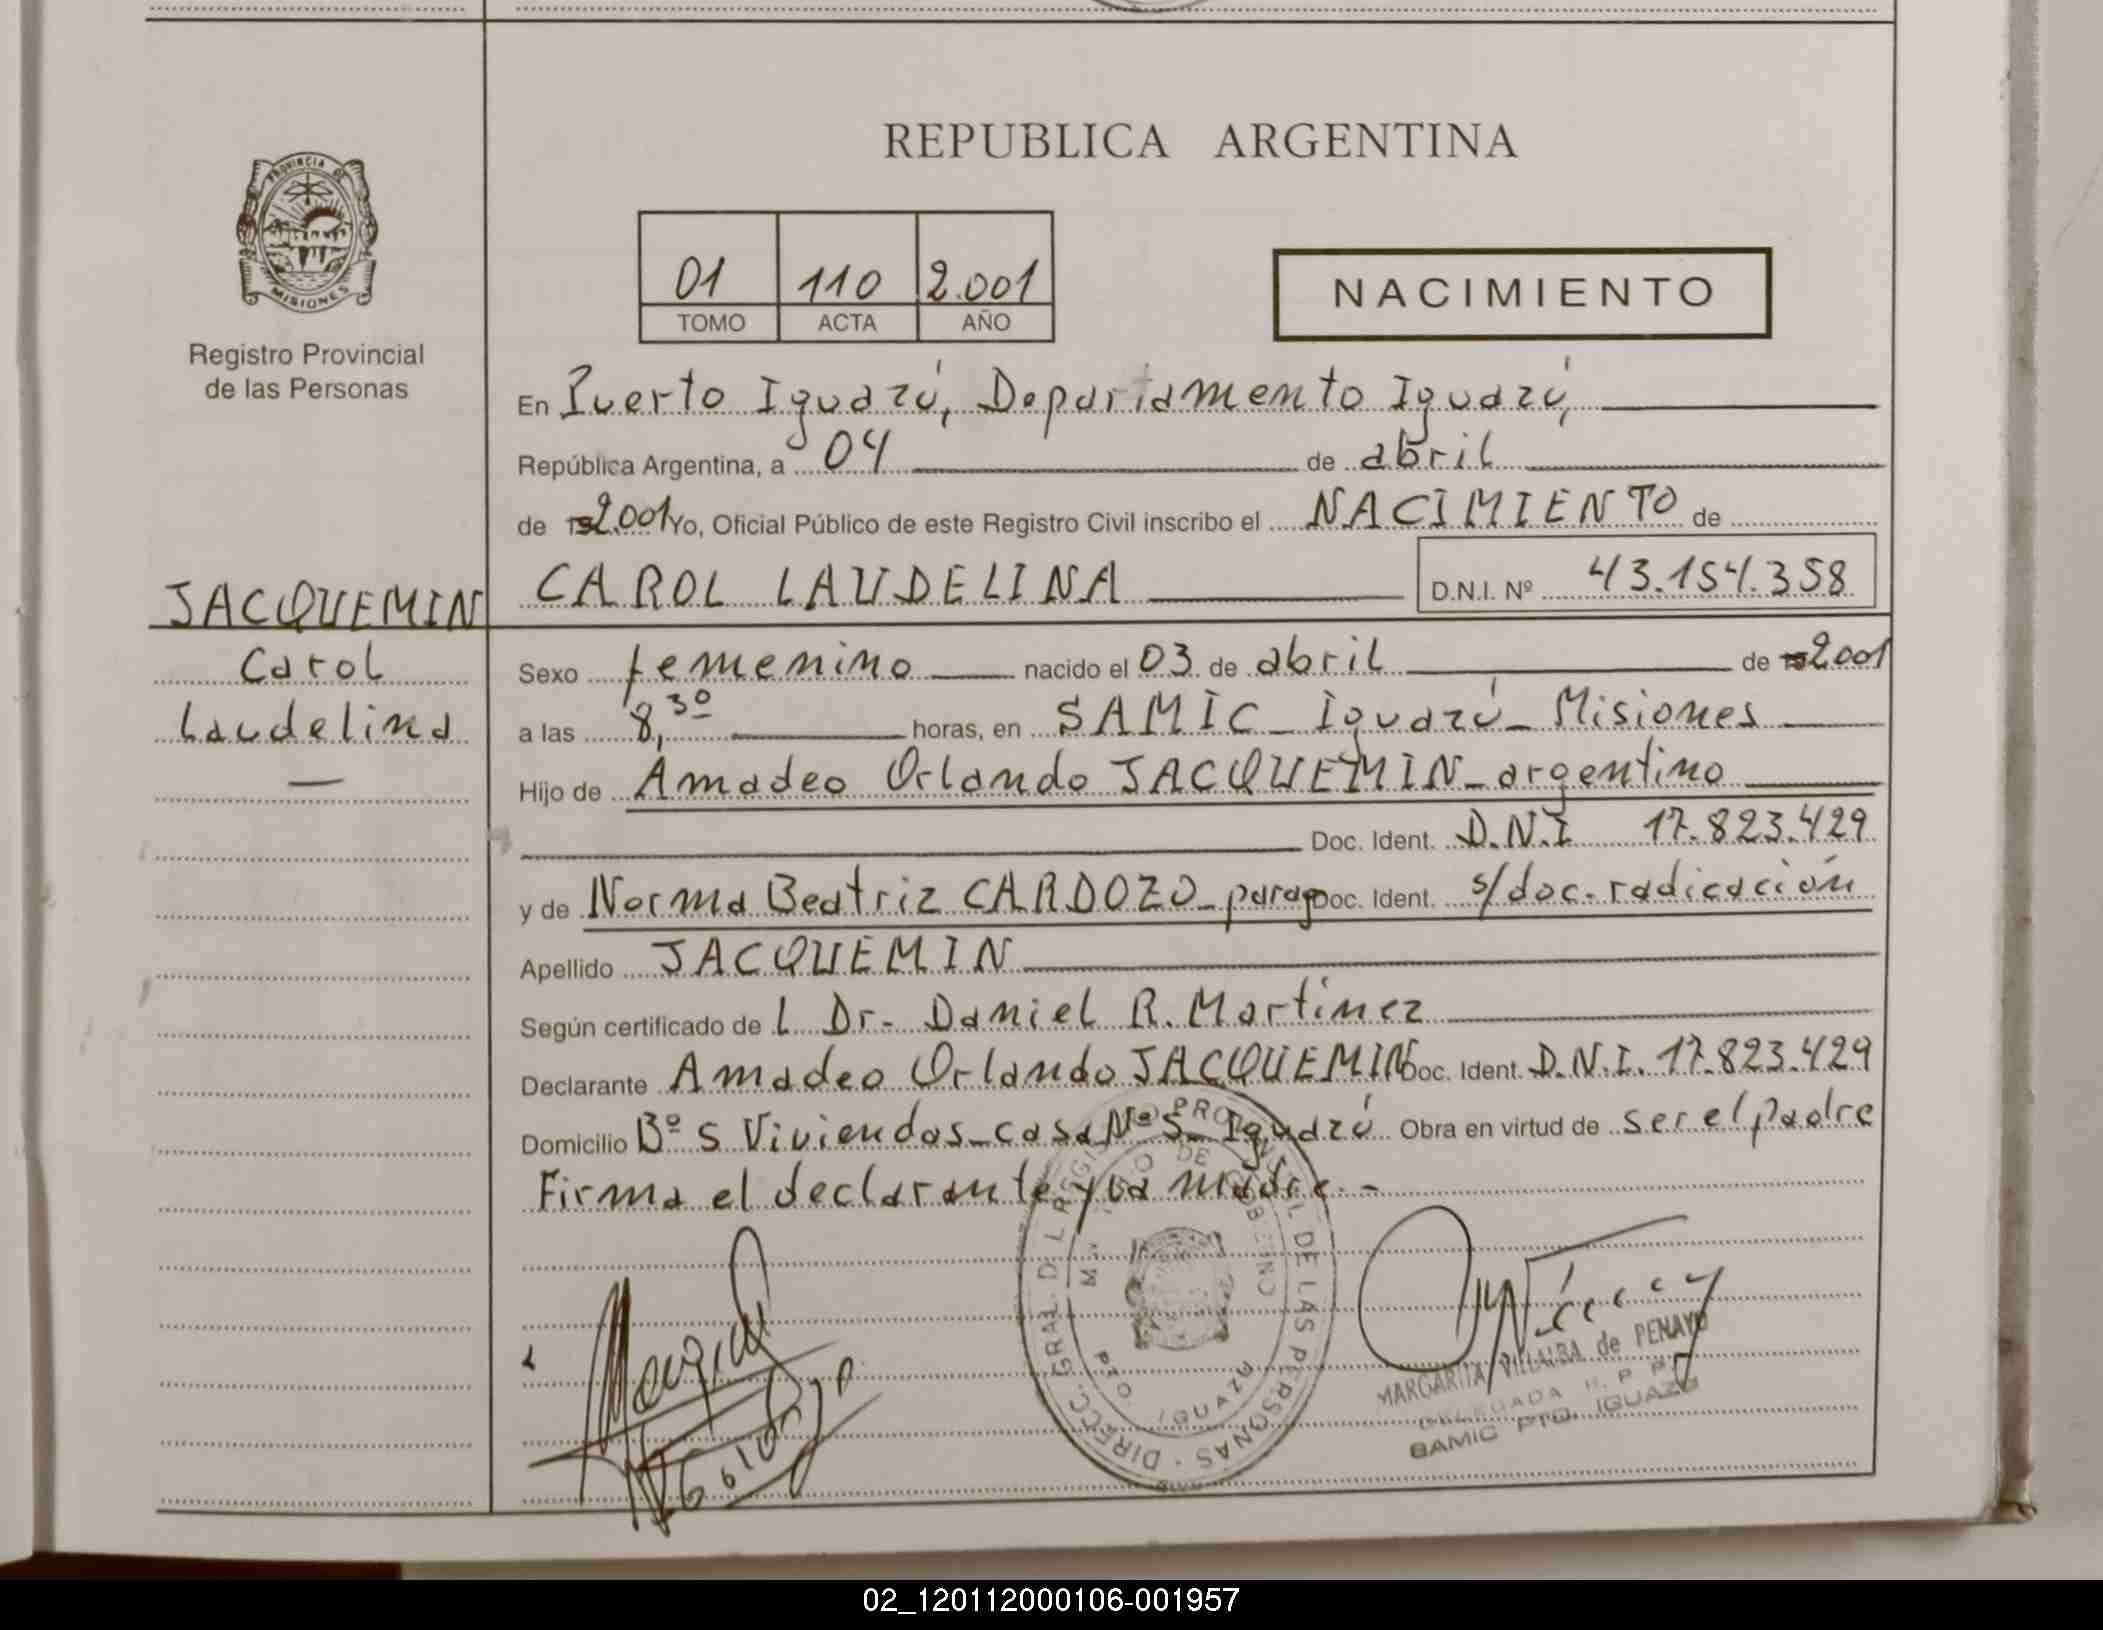 REPUBLICA ARGENTINA
PROVINCIA DE MISIONES
Registro Provincial
de las Personas
01 110 2.001
TOMO ACTA AÑO
NACIMIENTO
En Puerto Iguazú, Departamento Iguazú,
República Argentina, a 04 de abril
de 2.001 Yo, Oficial Público de este Registro Civil inscribo el NACIMIENTO de
JACQUEMIN
Carol
Laudelina
CAROL LAUDELINA D.N.I. Nº 43.154.358
Sexo femenino nacido el 03 de abril de 2001
a las 8,30 horas, en SAMIC - Iguazú - Misiones
Hijo de Amadeo Orlando JACQUEMIN - argentino
Doc. Ident. D.N.I 17.823.429
y de Norma Beatriz CARDOZO - parag Doc. Ident. s/doc. radicación
Apellido JACQUEMIN
Según certificado de l Dr. Daniel R. Martinez
Declarante Amadeo Orlando JACQUEMIN Doc. Ident. D.N.I. 17.823.429
Domicilio Bº 5 Viviendas - casa Nº 5 - Iguazú Obra en virtud de ser el padre
Firma el declarante y la madre. -
DIRECC. GRAL. DEL REGISTRO PROVINCIAL DE LAS PERSONAS
MINISTERIO DE GOBIERNO
PTO IGUAZU
MARGARITA VILLALBA de PENAYO
DELEGADA R. P. P.
SAMIC PTO. IGUAZU
02_120112000106-001957